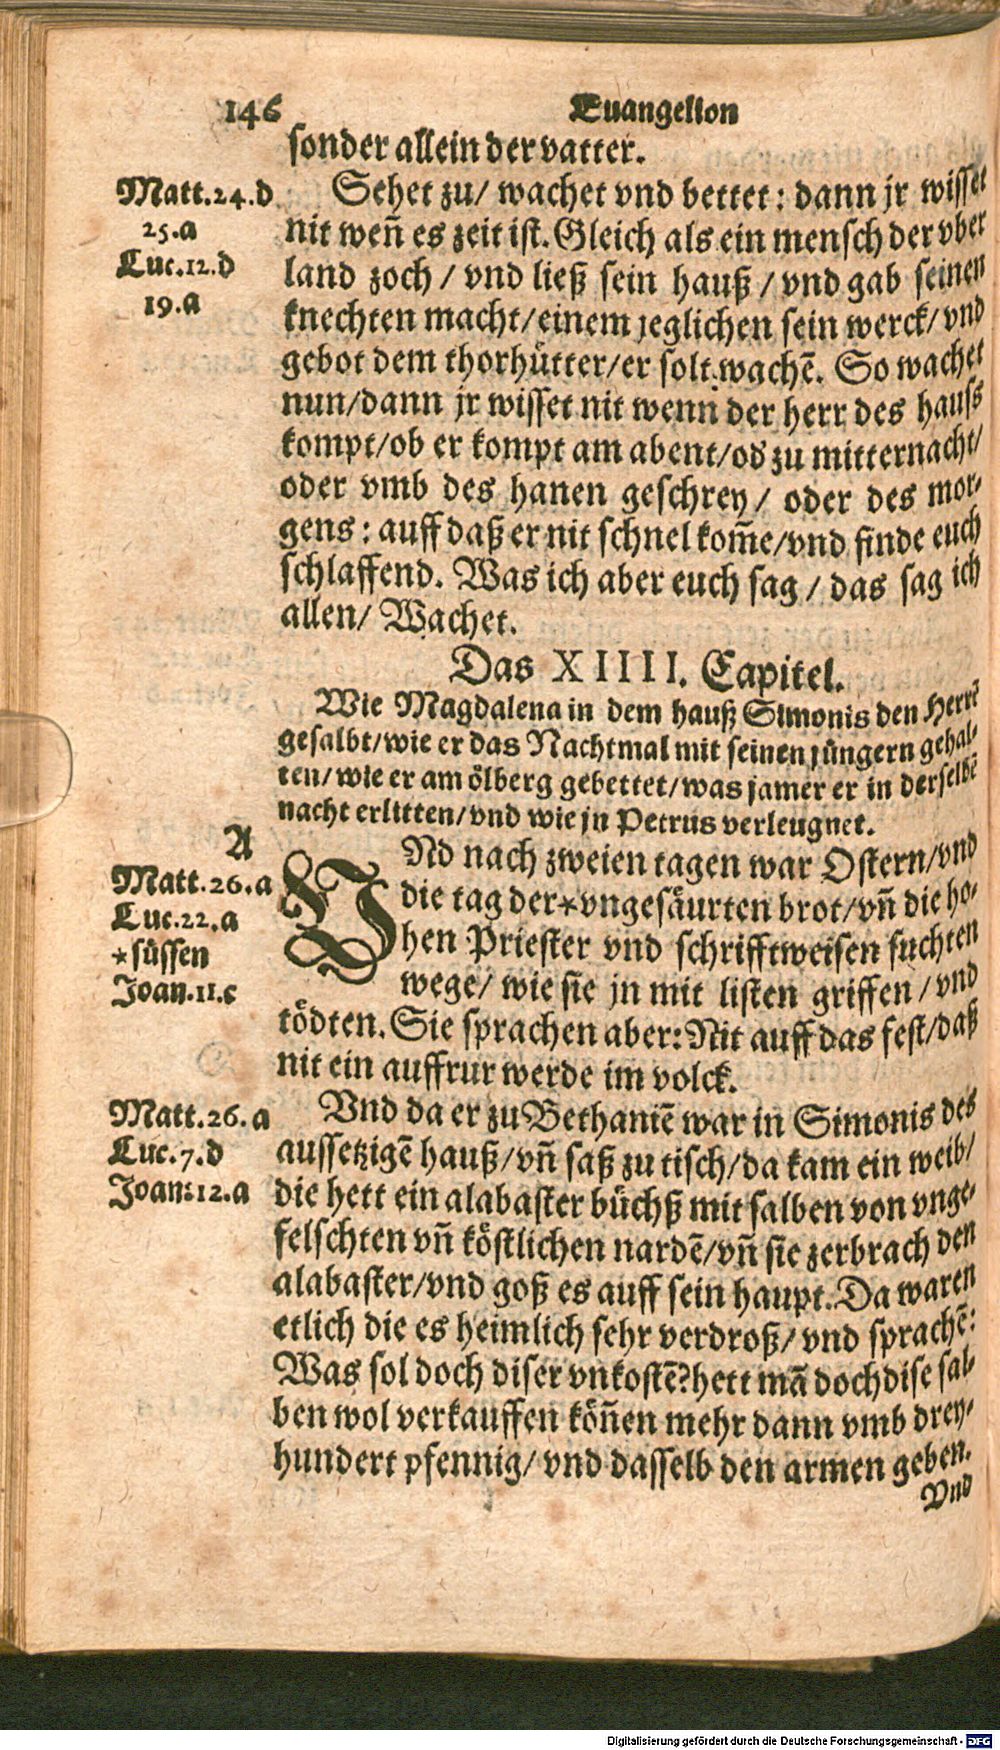 146 Euangelion
sonder allein der vatter.
Matt.24.d
25.a
Luc.12.d
19.a
Sehet zu/ wachet vnd bettet: dann jr wisset
nit weñ es zeit ist. Gleich als ein mensch der vber
land zoch / vnd ließ sein hauß / vnd gab seinen
knechten macht/einem jeglichen sein werck/vnd
gebot dem thorhütter/er solt wachē. So wachet
nun/dann jr wisset nit wenn der herr des hauss
kompt/ob er kompt am abent/od̕ zu mitternacht/
oder vmb des hanen geschrey/ oder des mor-
gens: auff daß er nit schnel kom̄e/vnd finde euch
schlaffend. Was ich aber euch sag / das sag ich
allen/ Wachet.
Das XIIII. Capitel.
Wie Magdalena in dem hauß Simonis den Herrē
gesalbt/wie er das Nachtmal mit seinen jüngern gehal-
ten/wie er am ölberg gebettet/was jamer er in derselbē
nacht erlitten/vnd wie jn Petrus verleugnet.
A
Matt.26.a
Luc.22.a
*süssen
Joan.11.c
VNd nach zweien tagen war Ostern/vnd
die tag der*vngesäurten brot/vñ die ho-
hen Priester vnd schrifftweisen suchten
wege/ wie sie jn mit listen griffen/vnd
tödten. Sie sprachen aber: Nit auff das fest/daß
nit ein auffrur werde im volck.
Matt.26.a
Luc.7.d
Joan:12.a
Vnd da er zu Bethaniē war in Simonis des
aussetzigē hauß/vñ saß zu tisch/da kam ein weib/
die hett ein alabaster büchß mit salben von vnge-
felschten vñ köstlichen nardē/vñ sie zerbrach den
alabaster/vnd goß es auff sein haupt. Da waren
etlich die es heimlich sehr verdroß/vnd sprachē:
Was sol doch diser vnkostē? hett mā doch dise sal-
ben wol verkauffen köñen mehr dann vmb drey-
hundert pfennig/ vnd dasselb den armen geben.
Vnd
Digitalisierung gefördert durch die Deutsche Forschungsgemeinschaft - DFG